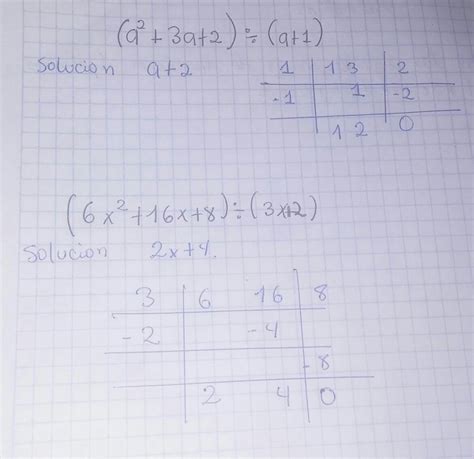 (a² + 3a+2) ÷ (a+1)
Solucion a+2
1 | 1 3 | 2
-1 | 1 | -2
1 2 0
(6x²+16x+8)÷(3x+2)
Solucion 2x+4.
3 | 6 16 | 8
-2 | -4 |
-8
2 4 0